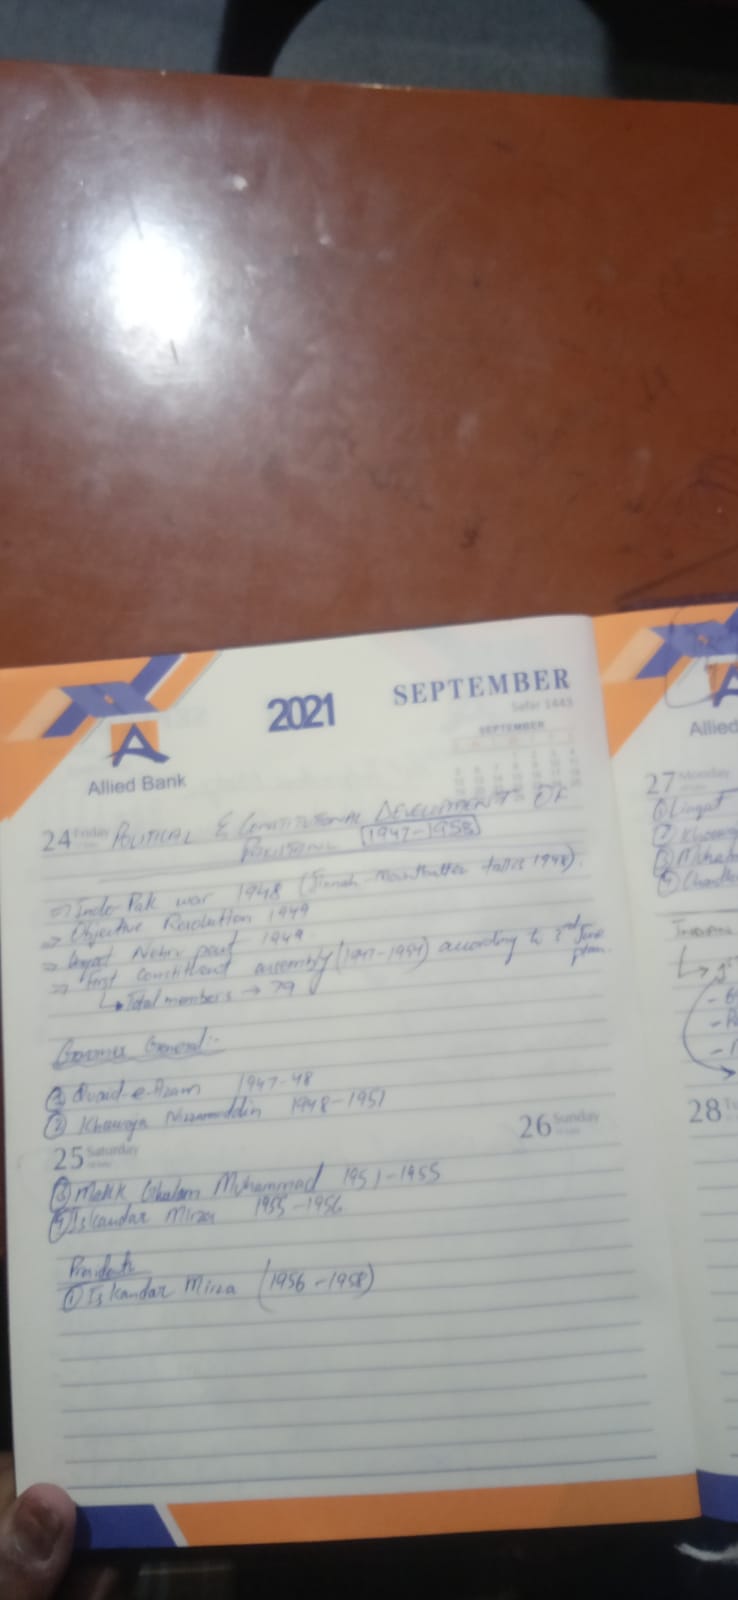 2021
SEPTEMBER
Safar 1443
SEPTEMBER
Allied Bank
24 Friday POLITICAL & CONSTITUTIONAL DEVELOPMENT OF
PAKISTAN [1947-1958]
=> Indo-Pak war 1948 (Jinnah Mountbatten talks 1948).
=> Objective Resolution 1949
=> Nehru pact 1949.
=> First Constituent assembly (1947-1954) according to 3rd June
plan.
↳ Total members → 79
Governor General:-
① Quaid-e-Azam 1947-48
② Khawaja Nizamuddin 1948-1951
25 Saturday
26 Sunday
③ Malik Ghulam Muhammad 1951-1955
④ Iskandar Mirza 1955-1956
Presidents
① Iskandar Mirza (1956-1958)
Allied
27 Monday
① Liaqat
②
③
④
28